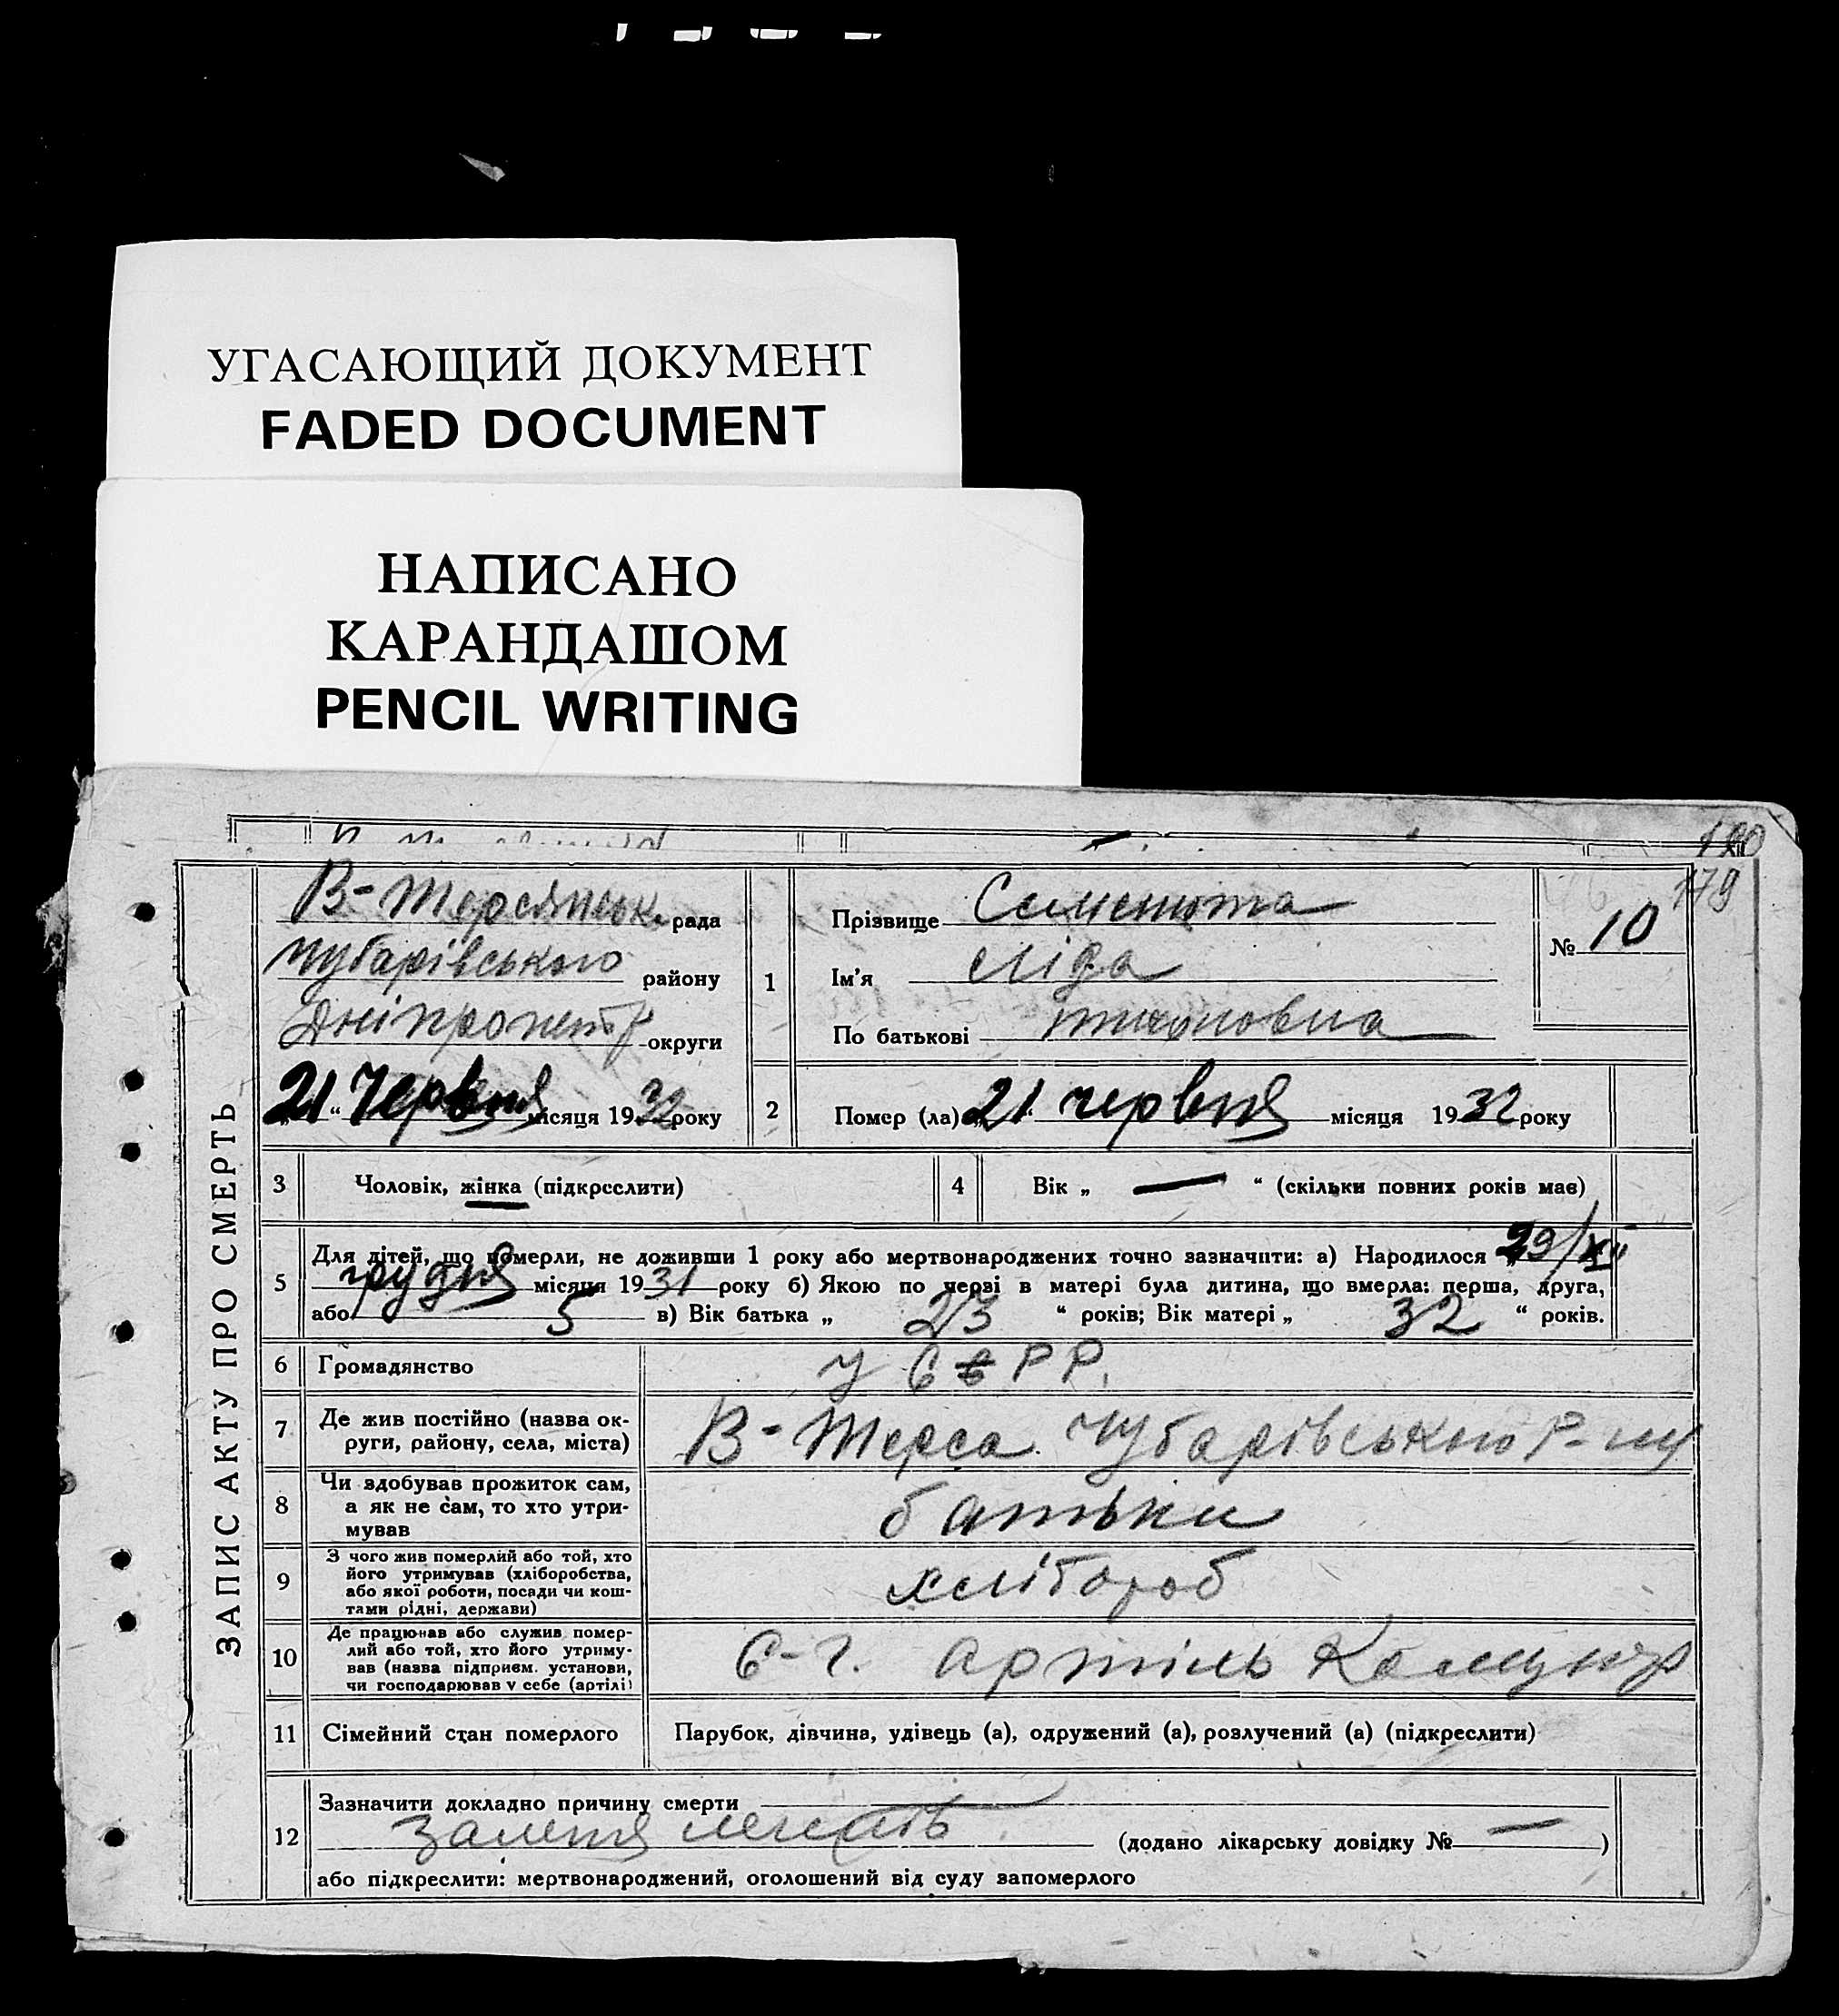 УГАСАЮЩИЙ ДОКУМЕНТ
FADED DOCUMENT
НАПИСАНО
КАРАНДАШОМ
PENCIL WRITING
190
179
ЗАПИС АКТУ ПРО СМЕРТЬ
В-Терсянськ. рада
Чубарівського району
Дніпропетр округи
21 “ Червня місяця 1932 року
1
Прізвище Семенюта
Ім'я Ліда
По батькові тихоновна
№ 10
2
Помер (ла) „21“ червня місяця 1932 року
3 Чоловік, жінка (підкреслити)
4 Вік „ — “ (скільки повних років має)
5 Для дітей, що померли, не доживши 1 року або мертвонароджених точно зазначити: а) Народилося 29/XII
грудня місяця 1931 року б) Якою по черзі в матері була дитина, що вмерла: перша, друга,
або 5 в) Вік батька „ 23 “ років; Вік матері „ 32 “ років.
6 Громадянство УССРР.
7 Де жив постійно (назва ок-
руги, району, села, міста) В-Терса Чубарівського Р-ну
8 Чи здобував прожиток сам,
а як не сам, то хто утри-
мував батьки
9 З чого жив померлий або той, хто
його утримував (хліборобства,
або якої роботи, посади чи кош-
тами рідні, держави) хлібороб
10 Де працював або служив помер-
лий або той, хто його утриму-
вав (назва підприєм. установи,
чи господарював у себе (артілі) С-г. артіль
11 Сімейний стан померлого Парубок, дівчина, удівець (а), одружений (а), розлучений (а) (підкреслити)
12 Зазначити докладно причину смерти
легенів (додано лікарську довідку № — )
або підкреслити: мертвонароджений, оголошений від суду запомерлого